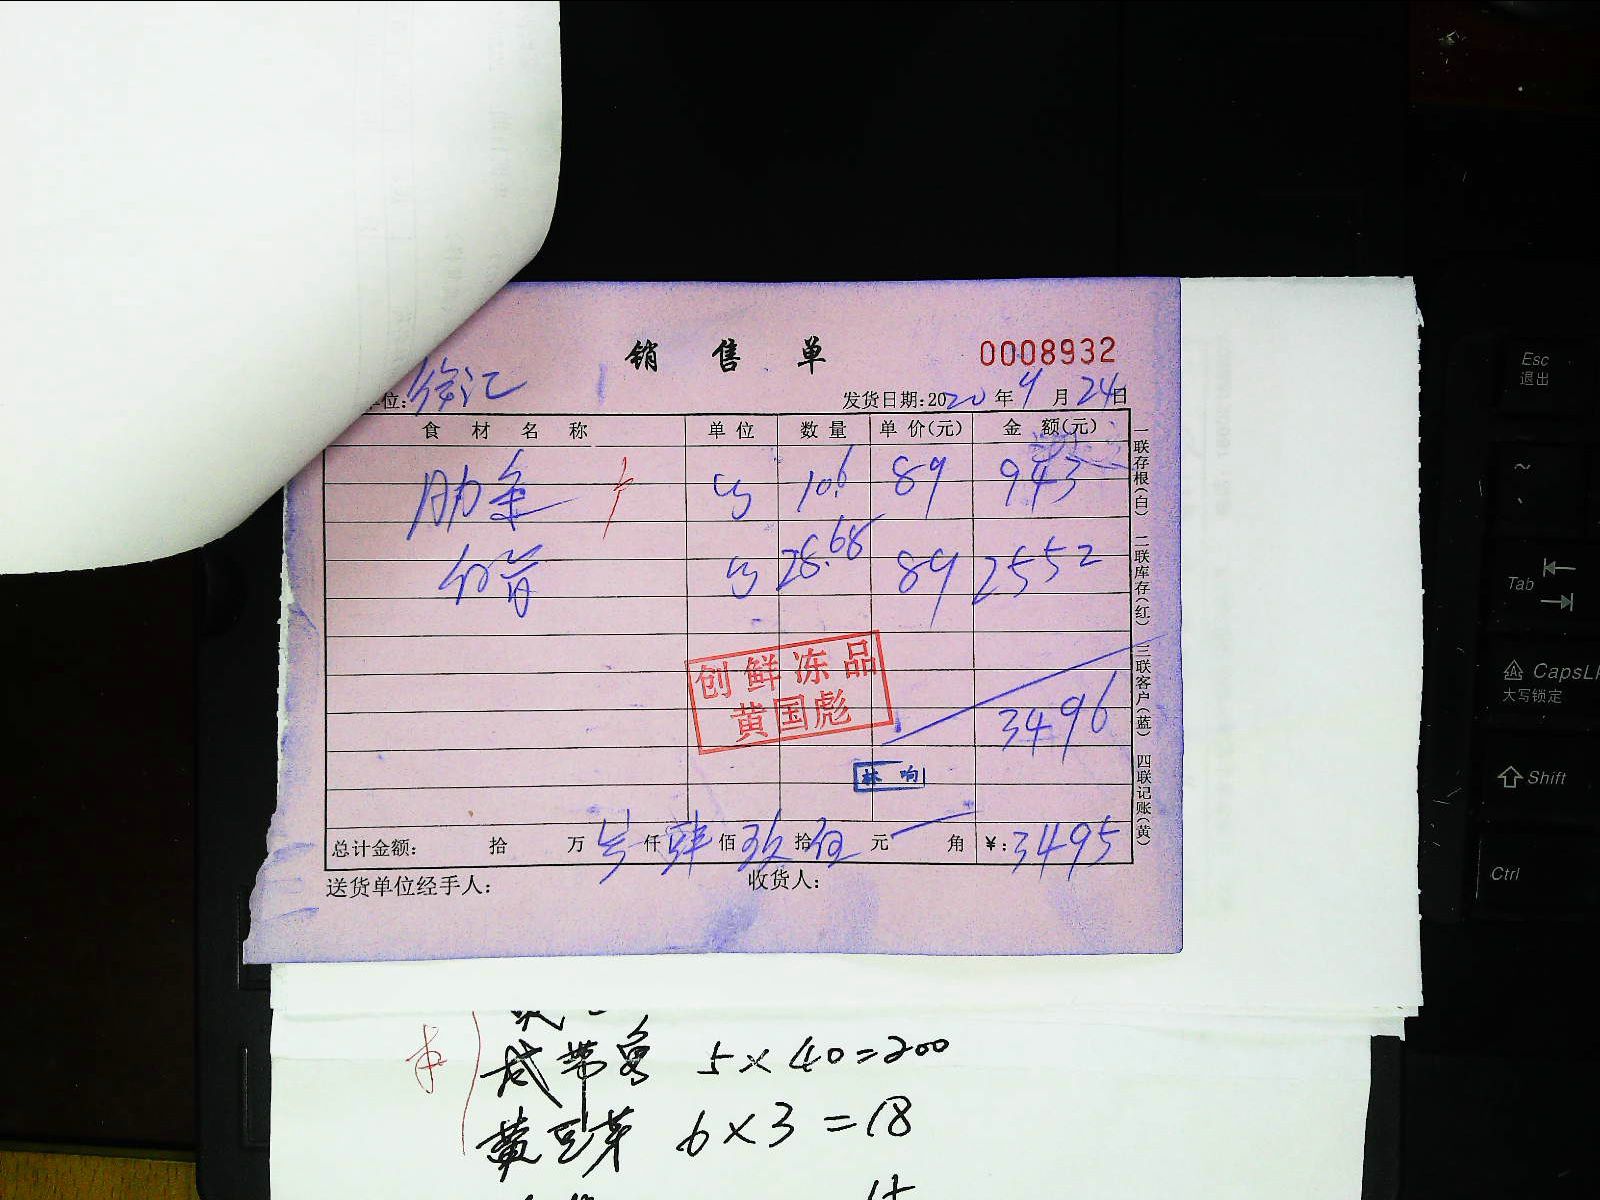 销售单 0008932
位: 徐汇 发货日期:2020年9月24日
食材名称 单位 数量 单价(元) 金额(元)
肋条 10.6 89 943
28.68 89 2552
创鲜冻品
黄国彪
3496
林响
总计金额: 拾 万 仟 肆佰 玖拾 伍元 角 ¥:3495
送货单位经手人: 收货人:
一联存根(白) 二联库存(红) 三联客户(蓝) 四联记账(黄)
咸带鱼 5×40=200
黄豆芽 6×3=18
Esc
退出
~
Tab
CapsL
大写锁定
Shift
Ctrl